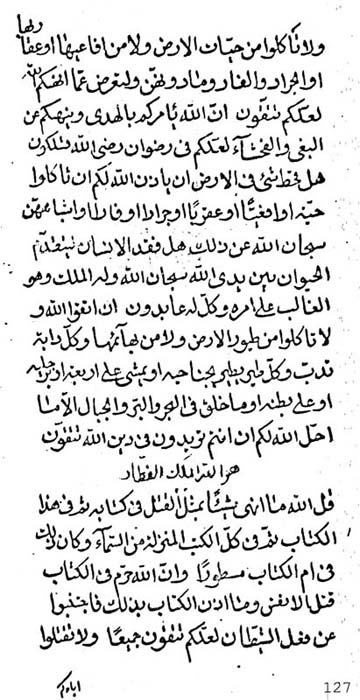 ولا تأكلوا من حيّات الارض ولا من افاعيها او عقاربها
او الجراد والفار وما دونهنّ ولتعرض عمّا انهٰكم الله
لعلكم تتقون انّ الله يأمركم بالهدى وينهٰكم عن
البغى والفحشآء لعلّكم فى رضوان رضى الله تسلكون
هل شئ فى الارض ان ياذن الله لكم ان تاكلوا
حيّة او افعيًّا او عقربًا او جرادا او فارا او امثالهنّ
سبحان الله عن ذلك هل فقد الانسان
الحيوان بين يدى الله سبحان الله وله الملك وهو
الغالب على امره وكلّ له عابدون ان اتقوا الله و
لا تاكلوا من طيور الارض ولا من بهآئمها وكلّ دابة
قدبّ وكلّ طير يطير بجناحيه او يمشى على اربعة او برجليه
او على بطنه او ما خلق فى البحر والبرّ والجبال الّا ما
احلّ الله لكم ان انتم تريدون فى دين الله تتقون
هو الله الملك القهّار
قل الله ما انهى شيئًا بمثل القتل فى كتابه ثم فى هذا
الكتاب ثم فى كلّ الكتب المنزلة من السمآء وكان ذلك
فى ام الكتاب مسطورًا وانّ الله حرّم فى الكتاب
قتل الانفس وما اذن الكتاب بذلك فاجتنبوا
عن فعل الشيطان لعلّكم تتقون جميعًا ولا تقتلوا
اباءكم
127